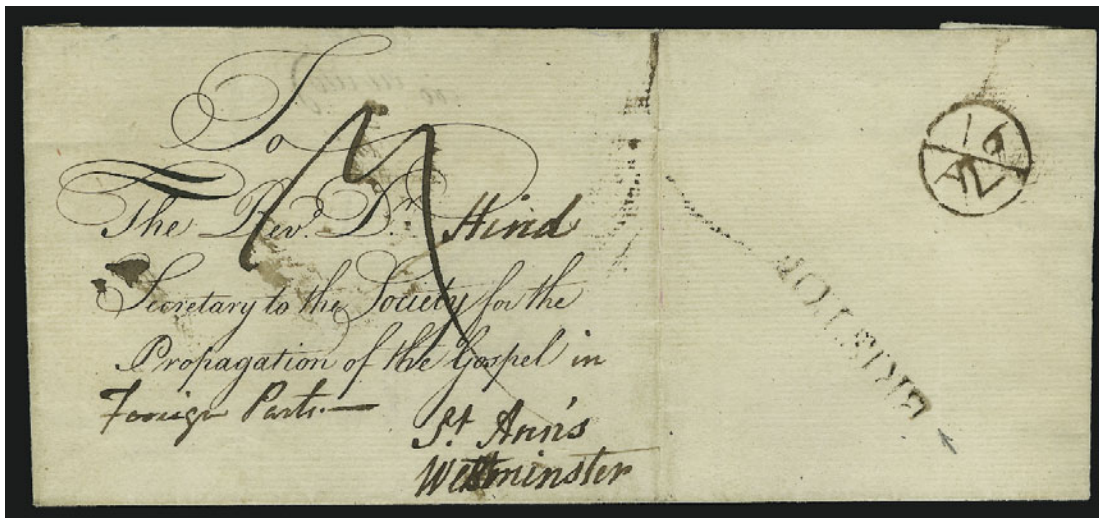 To
The Revd. Dr. Hind
Secretary to the Society for the
Propagation of the Gospel in
Foreign Parts.—
St. Ann's
Westminster
16
BRISTOL